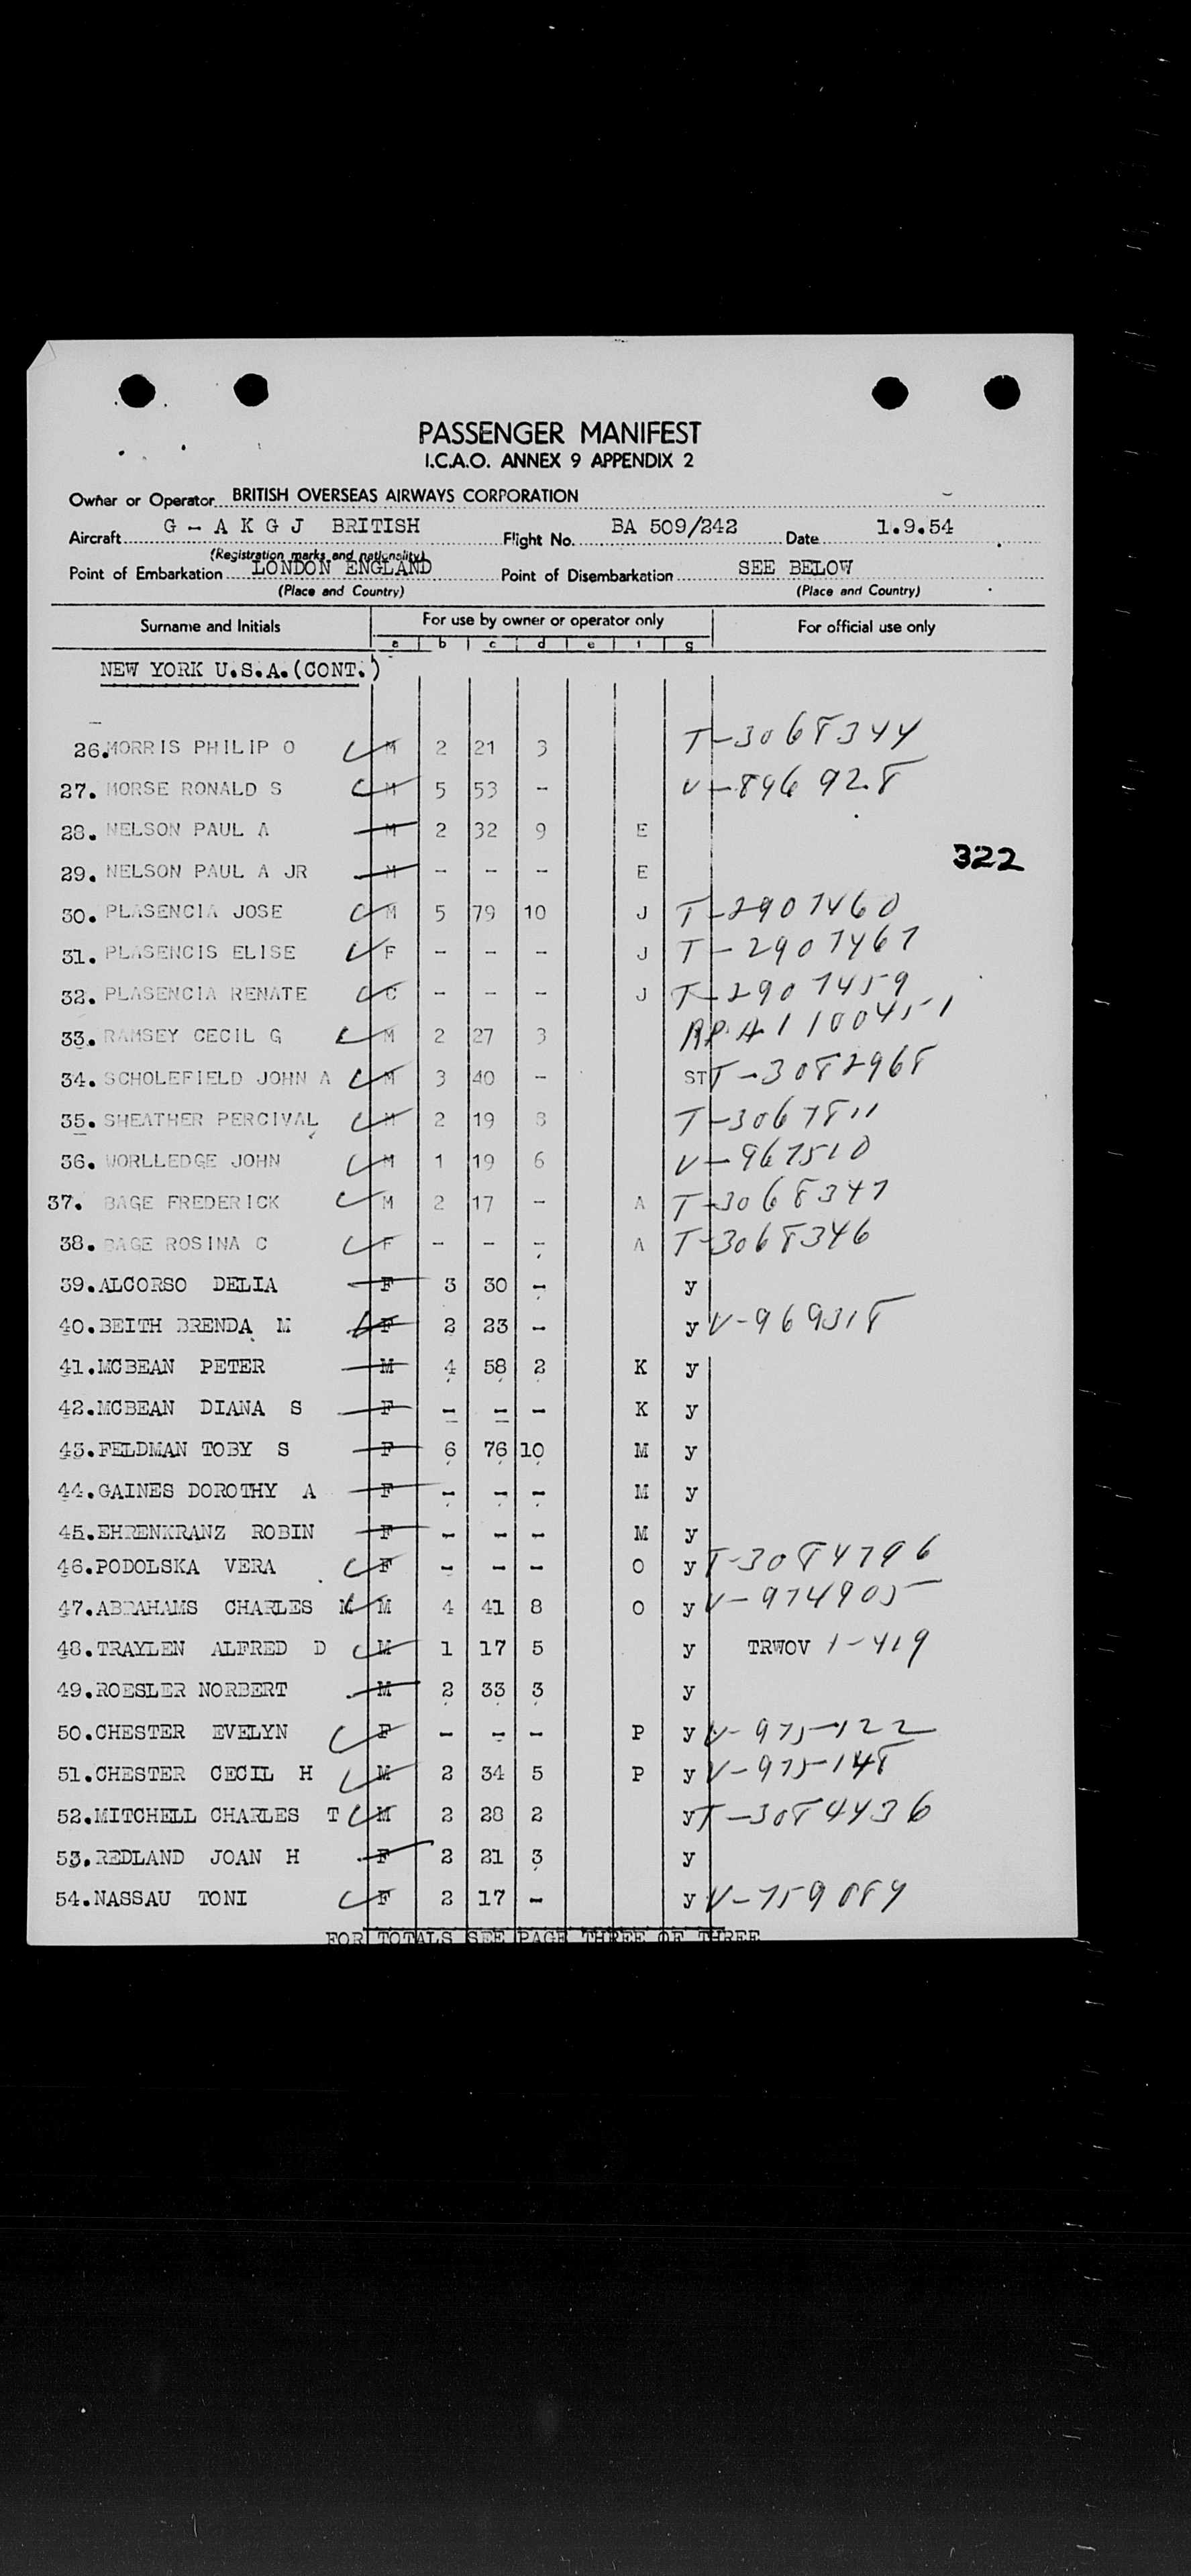 PASSENGER MANIFEST
I.C.A.O. ANNEX 9 APPENDIX 2
Owner or Operator BRITISH OVERSEAS AIRWAYS CORPORATION
Aircraft G - A K G J BRITISH Flight No. BA 509/242 Date 1.9.54
(Registration marks and nationality)
Point of Embarkation LONDON ENGLAND Point of Disembarkation SEE BELOW
(Place and Country) (Place and Country)
Surname and Initials For use by owner or operator only For official use only
a b c d e f g
NEW YORK U.S.A.(CONT.)
26.MORRIS PHILIP O M 2 21 3 T-3068344
27. MORSE RONALD S M 5 53 - V-896928
28. NELSON PAUL A M 2 32 9 E
322
29. NELSON PAUL A JR M - - - E
30. PLASENCIA JOSE M 5 79 10 J T-2907460
31. PLASENCIS ELISE F - - - J T-2907461
32. PLASENCIA RENATE C - - - J T-2907459
33. RAMSEY CECIL G M 2 27 3 1100451
34. SCHOLEFIELD JOHN A M 3 40 - ST T-3082968
35. SHEATHER PERCIVAL M 2 19 8 T-3067811
36. WORLLEDGE JOHN M 1 19 6 V-967510
37. BAGE FREDERICK M 2 17 - A T-3068347
38. BAGE ROSINA C F - - - A T-3068346
39.ALCORSO DELIA F 3 30 - y
40.BEITH BRENDA M F 2 23 - y V-969318
41.MCBEAN PETER M 4 58 2 K y
42.MCBEAN DIANA S F - - - K y
43.FELDMAN TOBY S F 6 76 10 M y
44.GAINES DOROTHY A F - - - M y
45.EHRENKRANZ ROBIN F - - - M y
46.PODOLSKA VERA F - - - O y T-3084796
47.ABRAHAMS CHARLES M M 4 41 8 O y V-974905
48.TRAYLEN ALFRED D M 1 17 5 y TRWOV 1-419
49.ROESLER NORBERT M 2 33 3 y
50.CHESTER EVELYN F - - - P y V-975122
51.CHESTER CECIL H M 2 34 5 P y V-975148
52.MITCHELL CHARLES T M 2 28 2 y T-3084436
53.REDLAND JOAN H F 2 21 3 y
54.NASSAU TONI F 2 17 - y V-759089
FOR TOTALS SEE PAGE THREE OF THREE